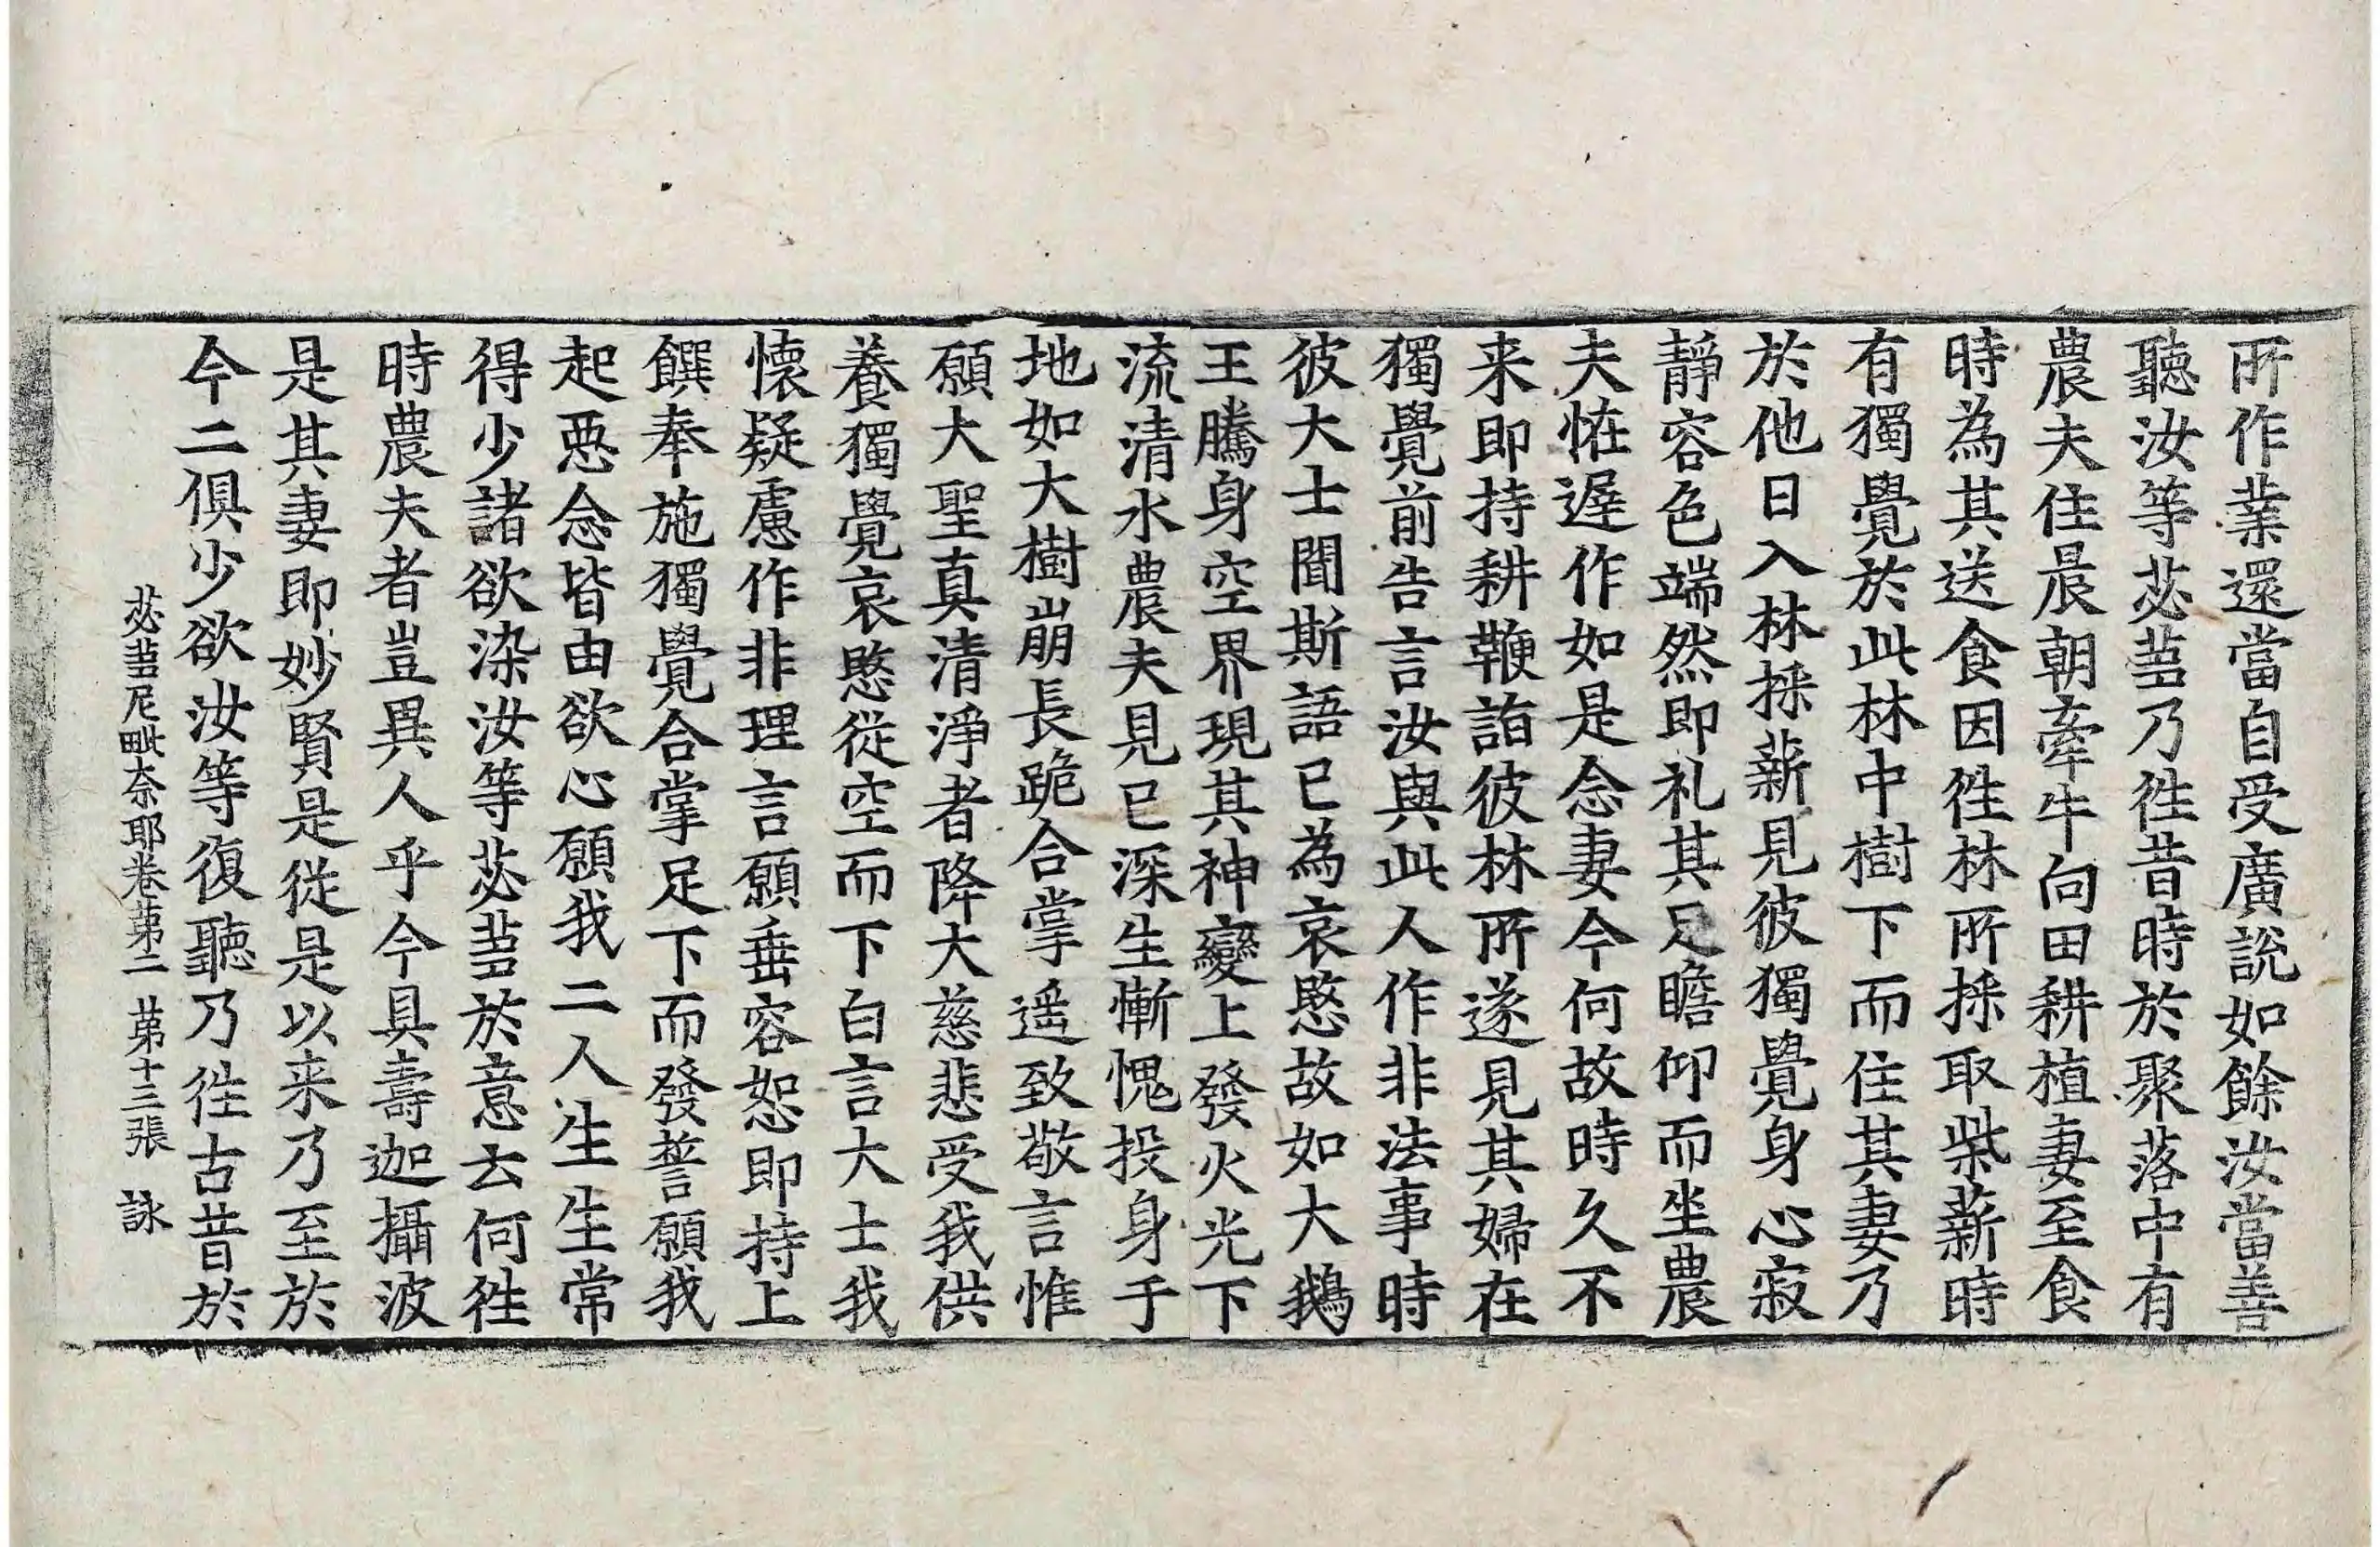 所作業還當自受廣說如餘汝當善
聽汝等苾蒭乃徃昔時於聚落中有
農夫住晨朝牽牛向田耕植妻至食
時為其送食因徃林所採取柴薪時
有獨覺於此林中樹下而住其妻乃
於他日入林採薪見彼獨覺身心寂
靜容色端然即礼其足瞻仰而坐農
夫恠遅作如是念妻今何故時久不
来即持耕鞭詣彼林所遂見其婦在
獨覺前告言汝與此人作非法事時
彼大士聞斯語已為哀愍故如大鵝
王騰身空界現其神變上發火光下
流清水農夫見已深生慚愧投身于
地如大樹崩長跪合掌遥致敬言惟
願大聖真清淨者降大慈悲受我供
養獨覺哀愍從空而下白言大士我
懷疑慮作非理言願垂容恕即持上
饌奉施獨覺合掌足下而發誓願我
起惡念皆由欲心願我二人生生常
得少諸欲染汝等苾蒭於意云何徃
時農夫者豈異人乎今具壽迦攝波
是其妻即妙賢是從是以来乃至於
今二俱少欲汝等復聽乃徃古昔於
苾蒭尼毗奈耶卷苐二 苐十三張 詠